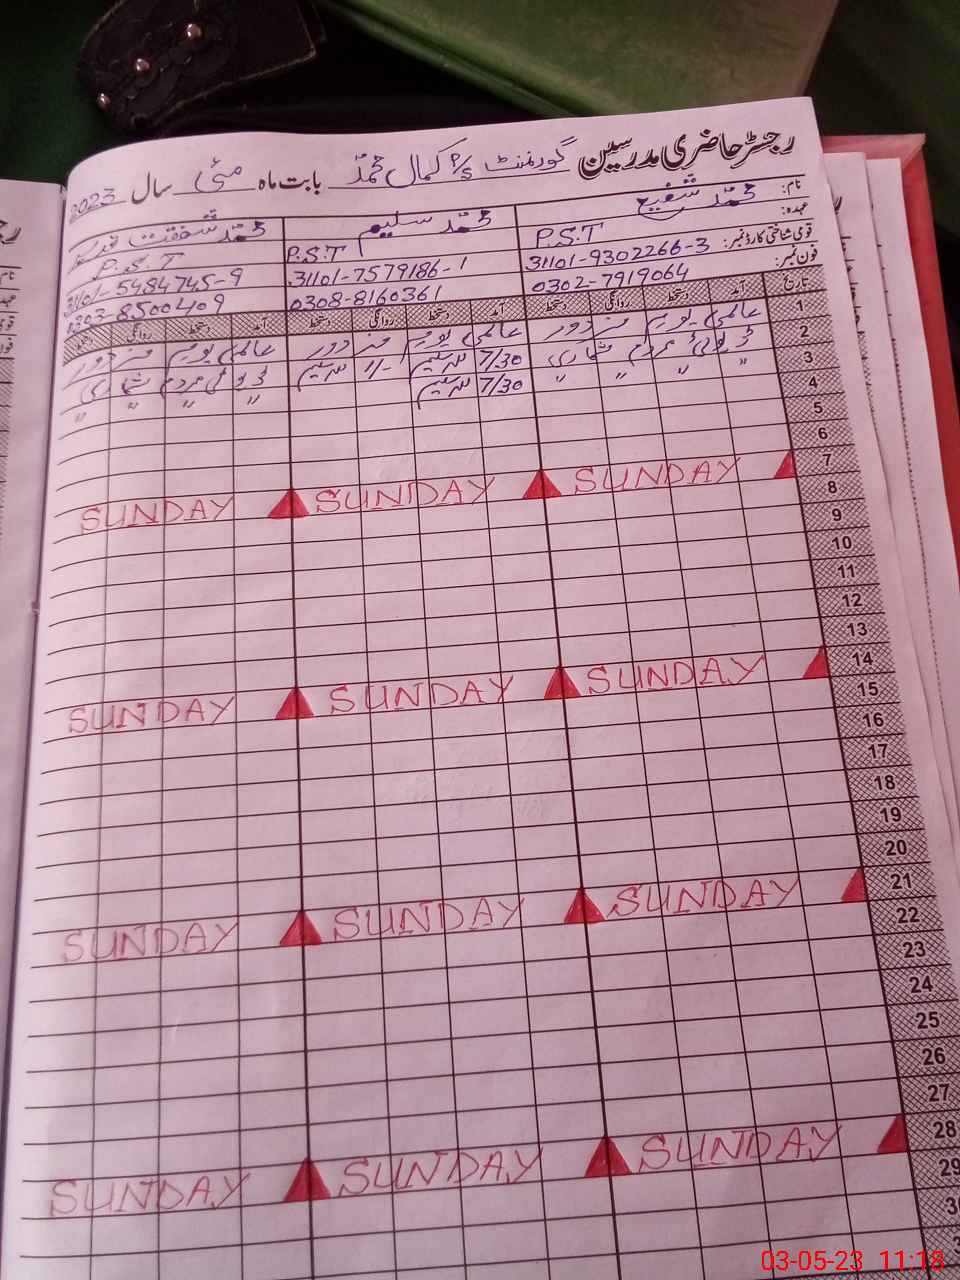 رجسٹر حاضری مدرسین گورنمنٹ P/S کمال محمد بابت ماہ مئی سال 2023
نام: محمد شفیع محمد سلیم محمد شفقت
عہدہ: P.S.T P.S.T P.S.T
قومی شناختی کارڈ نمبر: 31101-9302266-3 31101-7579186-1 31101-5484745-9
فون نمبر: 0302-7919064 0308-8160361 0303-8500409
تاریخ آمد دستخط روانگی دستخط آمد دستخط روانگی دستخط آمد دستخط روانگی دستخط
1 عالمی یوم مزدور عالمی یوم مزدور عالمی یوم مزدور
2 ڈیوٹی مردم شماری 7/30 سلیم 1/- سلیم ڈیوٹی مردم شماری
3 " " " " 7/30 سلیم " " " "
4
5
6
7 SUNDAY SUNDAY SUNDAY
8
9
10
11
12
13
14 SUNDAY SUNDAY SUNDAY
15
16
17
18
19
20
21 SUNDAY SUNDAY SUNDAY
22
23
24
25
26
27
28 SUNDAY SUNDAY SUNDAY
29
30
03-05-23 11:18